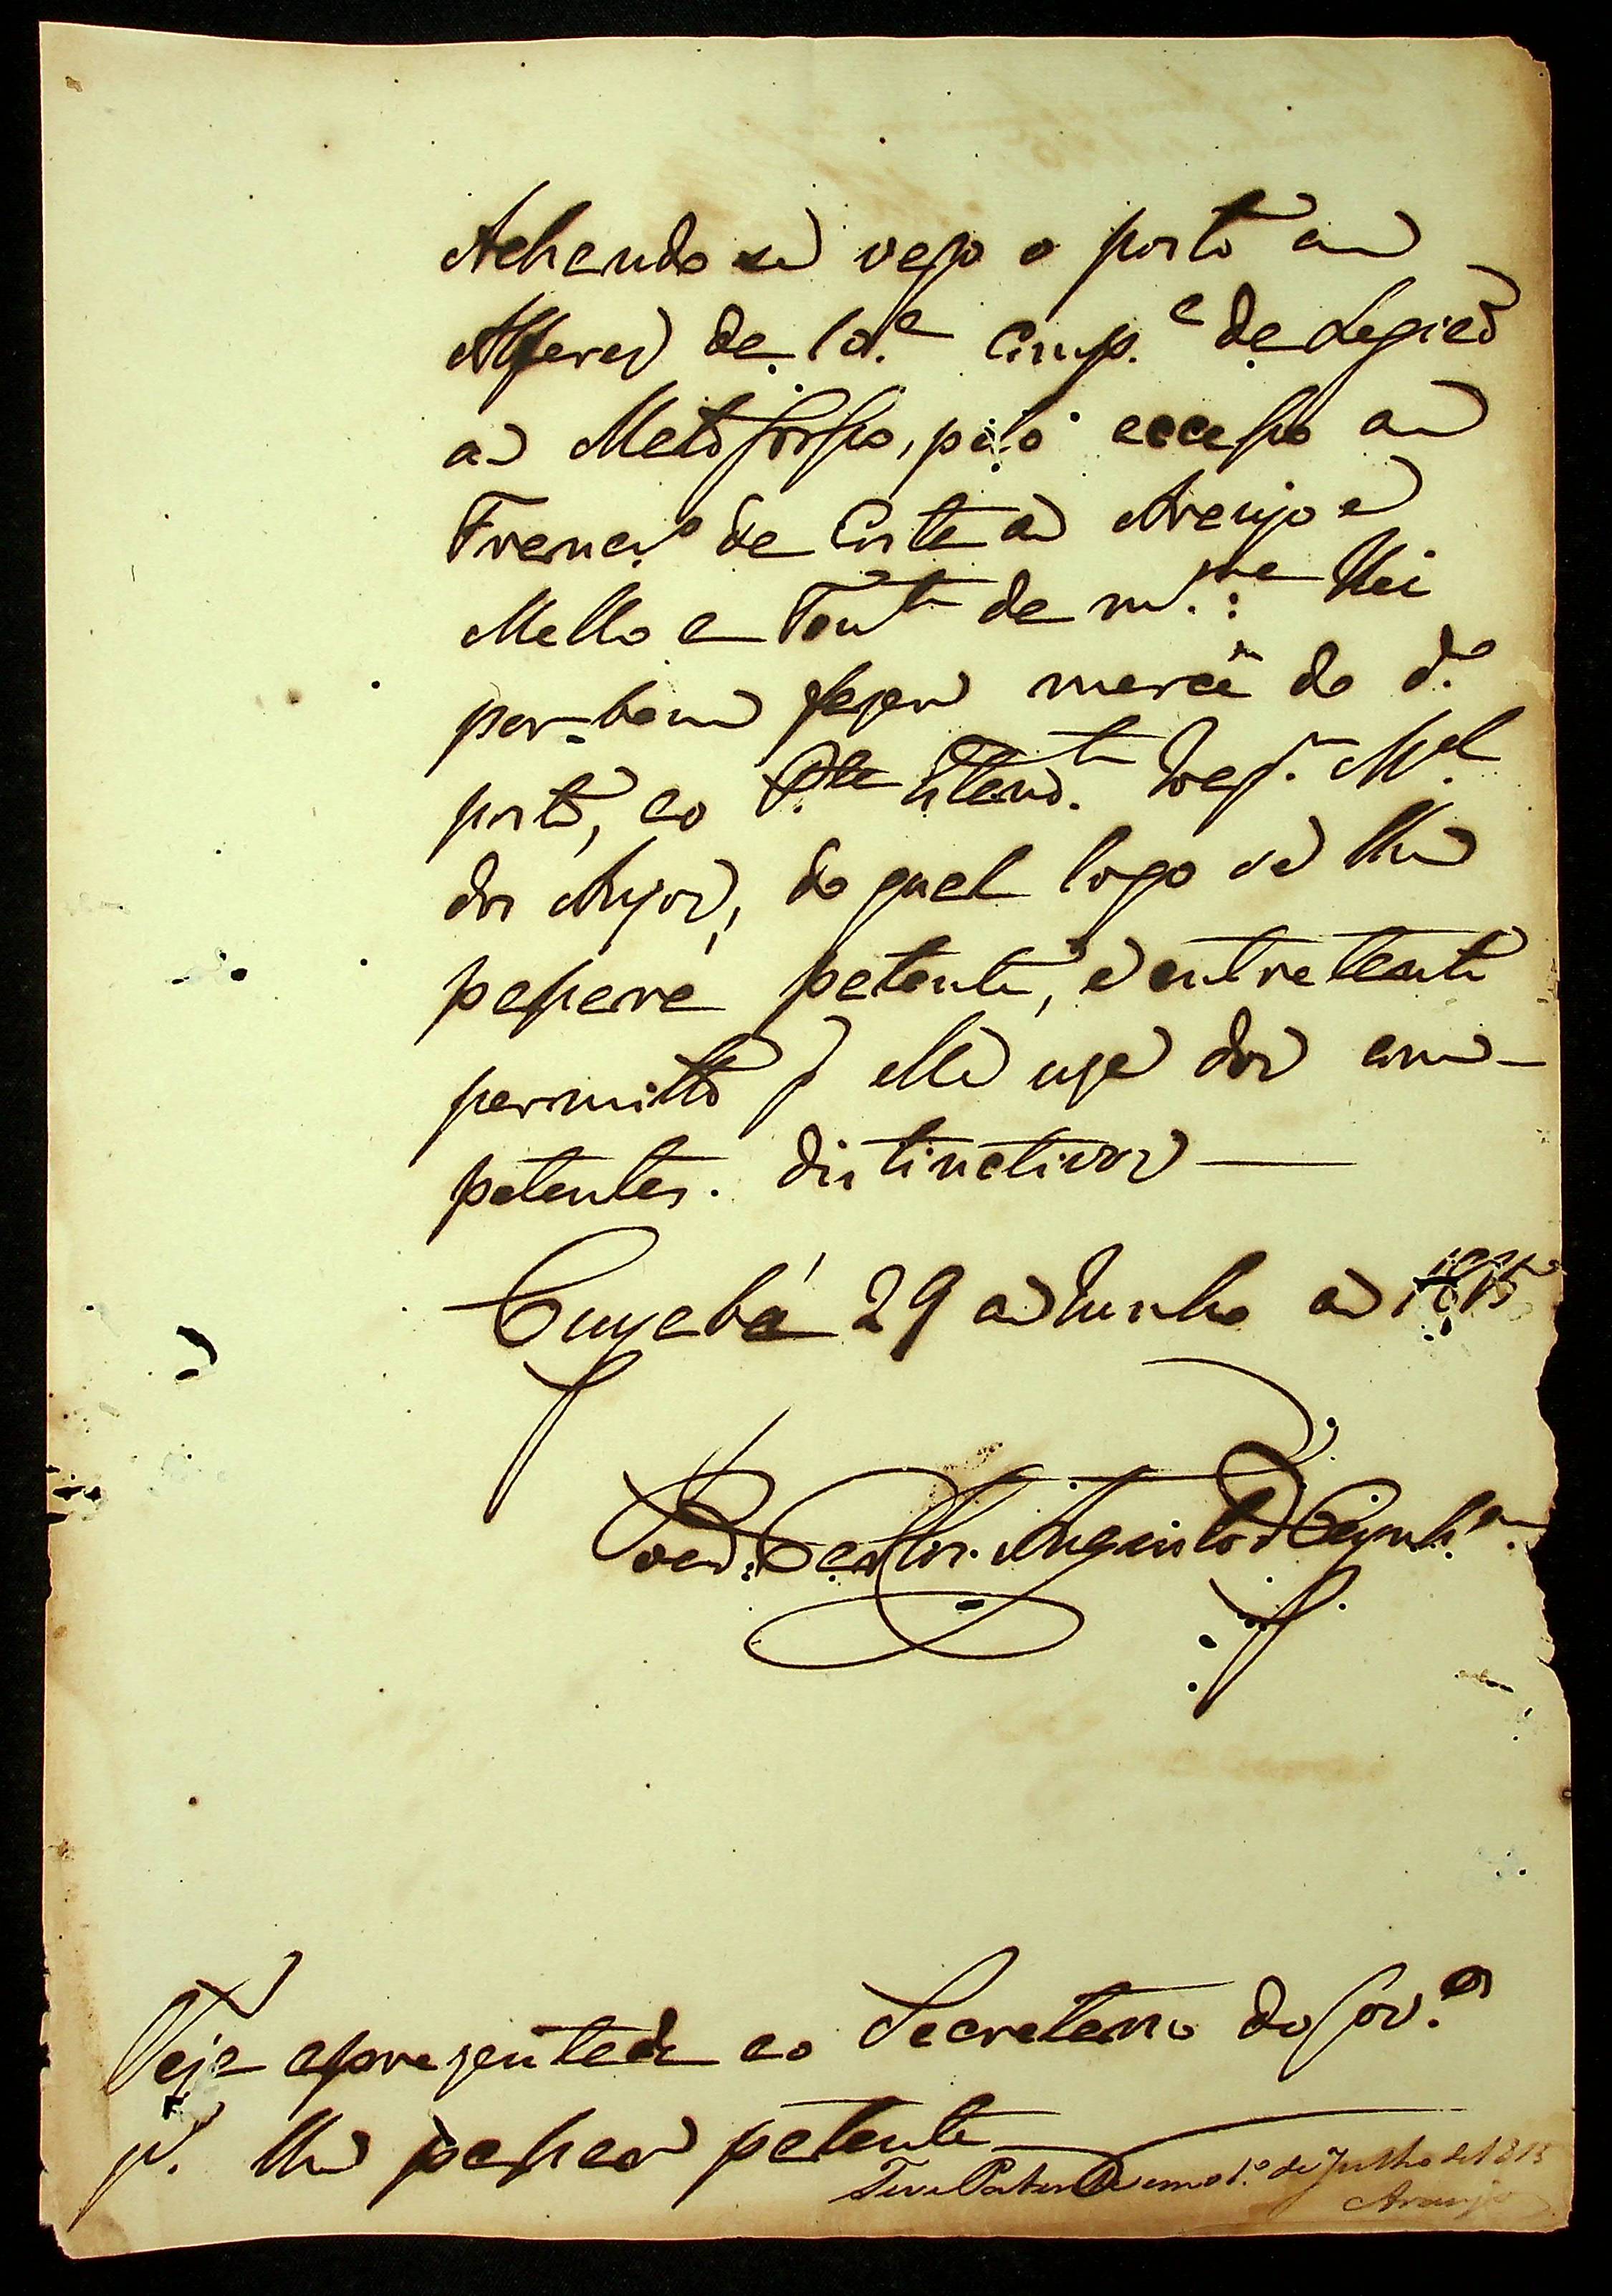 Achando se vago o posto de
Alferes da 10.ª Comp.ª da Legião
de Mato grosso, pelo accesso de
Franc.º da Costa de Araujo e
Mello a Ten.te da m.ma: Hei
por bem fazer mercê do d.º
posto, ao Jose M.el
dos Anjos, do qual logo se lhe
passará patente, e entretanto
permitto q elle use dos com-
petentes. distinctivos
Cuyabá 29 de Junho de 1815
João Carlos Augusto d'Oeynh.en
Seja apresentada ao Secretario do Gov.º
p.ª lhe passar patente
Teve Patente em o 1.º de Julho de 1815
Araujo